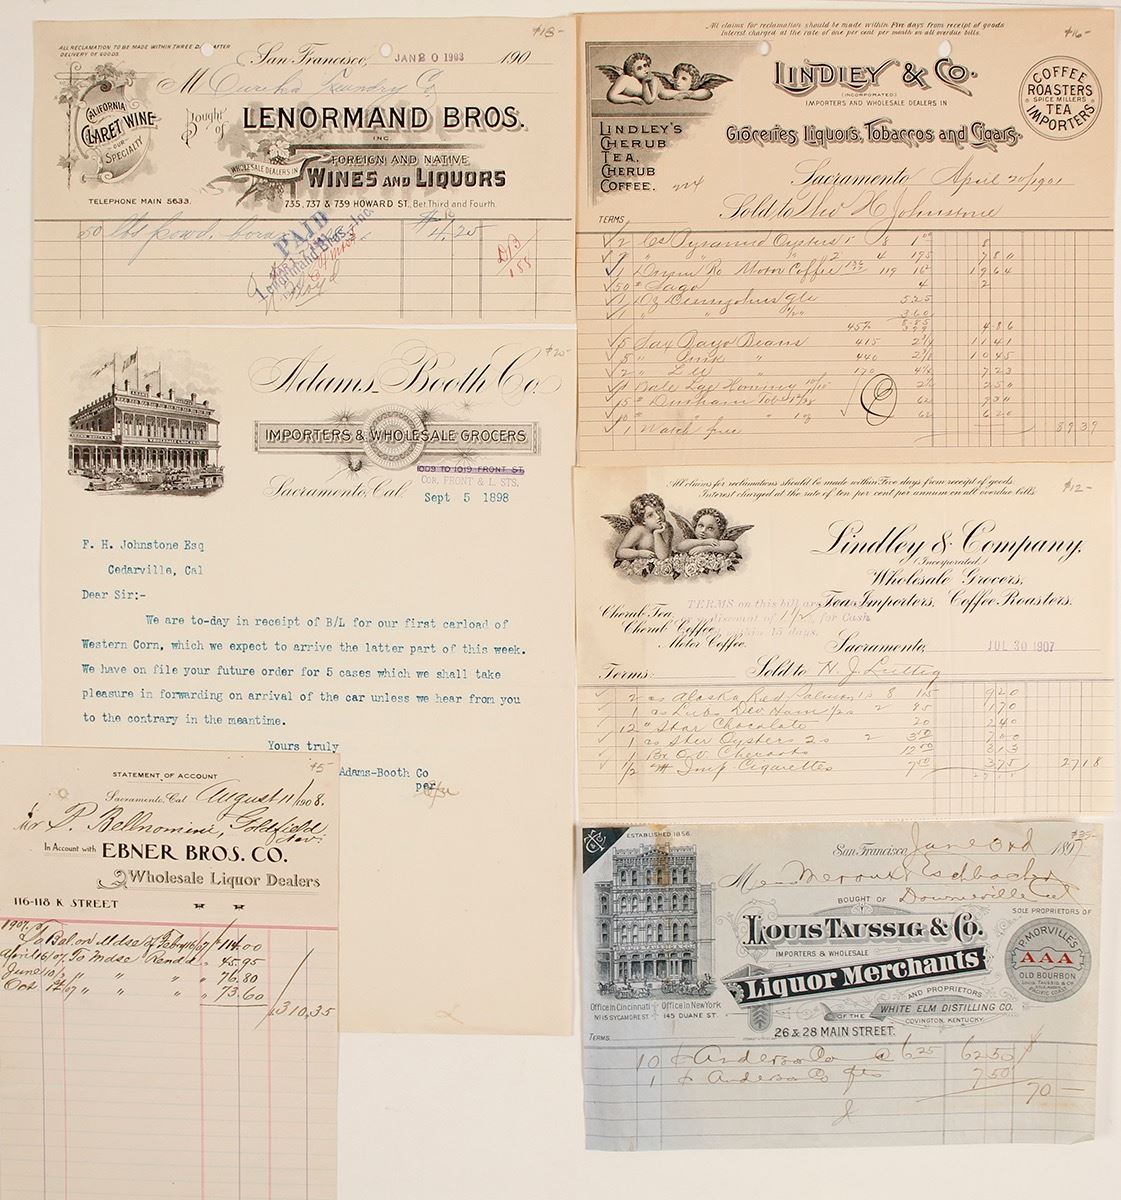 $18-
ALL RECLAMATION TO BE MADE WITHIN THREE DAYS AFTER
DELIVERY OF GOODS
San Francisco, JAN 20 1903 190
M Eureka Foundry Co
Bought of
CALIFORNIA
CLARET WINE
OUR
SPECIALTY
LENORMAND BROS.
INC.
WHOLESALE DEALERS IN
FOREIGN AND NATIVE
WINES AND LIQUORS
TELEPHONE MAIN 5633.
735, 737 & 739 HOWARD ST, Bet Third and Fourth.
50 lbs powd. Borax
$4.25
PAID
Lenormand Bros. Inc.
$16-
All claims for reclamation should be made within Five days from receipt of goods
Interest charged at the rate of one per cent per month on all overdue bills.
LINDLEY & CO.
(INCORPORATED)
IMPORTERS AND WHOLESALE DEALERS IN
Groceries, Liquors, Tobaccos and Cigars.
COFFEE
ROASTERS
SPICE MILLERS
TEA
IMPORTERS
LINDLEY'S
CHERUB
TEA.
CHERUB
COFFEE.
Sacramento April 20/1901
Sold to Johnstone
TERMS,
2 Cs Pyramid Oysters 1s 8 1 00 8
2 " " 2s 4 195 780
1 Drum Ro Motor Coffee 119 16½ 1964
50# Sago 4 2
1 Dz Demijohns 525
1 " " 360
45%
486
5 Sax Bayo Beans 415 2¾ 1141
5 " Pink " 440 1045
2 " 170 4¼ 723
1 Bale Lge Hominy 250
15# Durham Tob 62 930
10# " " 62 620
1 Watch free
8939
$20-
Adams-Booth Co.
IMPORTERS & WHOLESALE GROCERS
1009 TO 1019 FRONT ST.
COR. FRONT & L STS.
Sacramento, Cal. Sept 5 1898
F. H. Johnstone Esq
Cedarville, Cal
Dear Sir:-
We are to-day in receipt of B/L for our first carload of
Western Corn, which we expect to arrive the latter part of this week.
We have on file your future order for 5 cases which we shall take
pleasure in forwarding on arrival of the car unless we hear from you
to the contrary in the meantime.
Yours truly
Adams-Booth Co
per
$12-
All claims for reclamations should be made within Five days from receipt of goods.
Interest charged at the rate of ten per cent per annum on all overdue bills.
Lindley & Company,
(Incorporated.)
Wholesale Grocers,
Tea Importers, Coffee Roasters.
Cherub Tea
Cherub Coffee
Motor Coffee.
TERMS on this bill are
discount of 1½ for Cash
within 15 days.
Sacramento, JUL 30 1907
Sold to N. J. Luttig
Terms:
2 cs Alaska Red Salmon 1s 8 115 920
1 cs Lubs Dev Ham 2 85 170
12 " Star Chocolate 20 240
1 cs Star Oysters 2s 2 350 700
1 Bx O.V. Cheroots 213
1/2 M Imp Cigarettes 750 375
2718
$5-
STATEMENT OF ACCOUNT
Sacramento, Cal August 11/1908.
Mr P. Bellnomini, Goldfield
Nev.
In Account with EBNER BROS. CO.
Wholesale Liquor Dealers
116-118 K STREET
1907
To Bal on Mdse of Febry 16/07 $114.00
April 16/07 To Mdse Rend'd " 45.95
June 10/07 " " " " 76.80
Oct 14/07 " " " " 73.60
$310.35
$35-
ESTABLISHED 1856
San Francisco, June 3rd 1897
Mess Meroux
Downieville Cal
BOUGHT OF
LOUIS TAUSSIG & CO.
IMPORTERS & WHOLESALE
Liquor Merchants
AND PROPRIETORS
OF THE
WHITE ELM DISTILLING CO.
COVINGTON, KENTUCKY.
26 & 28 MAIN STREET.
SOLE PROPRIETORS OF
P. MORVILLE'S
AAA
OLD BOURBON
LOUIS TAUSSIG & CO
SOLE AGENTS
PACIFIC COAST
Office in Cincinnati
No 115 SYCAMORE ST
Office in New York
145 DUANE ST.
TERMS
10 Anderson Co @ 6.25 62.50
1 Anderson Co 7.50
70 —